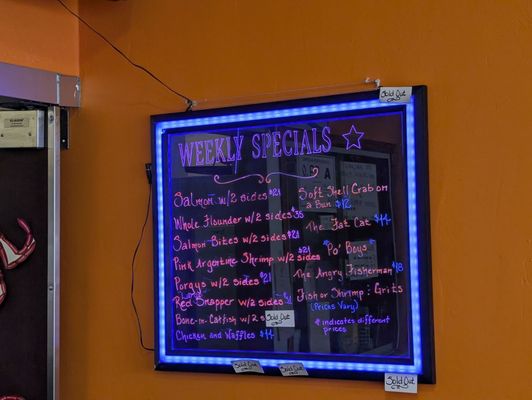 Sold Out
WEEKLY SPECIALS
Salmon w/2 sides $21
Whole Flounder w/2 sides $35
Salmon Bites w/2 sides $21
Pink Argentine Shrimp w/2 sides $21
Porgys w/2 sides $21
Large
Red Snapper w/2 sides
Bone-in-Catfish w/2 s
Sold Out
Chicken and Waffles $14
Soft Shell Crab on
a Bun $12
The Fat Cat $14
"Po' Boys"
The Angry Fisherman $18
Fish or Shrimp : Grits
(Prices Vary)
* indicates different
prices
Sold Out
Sold Out
Sold Out